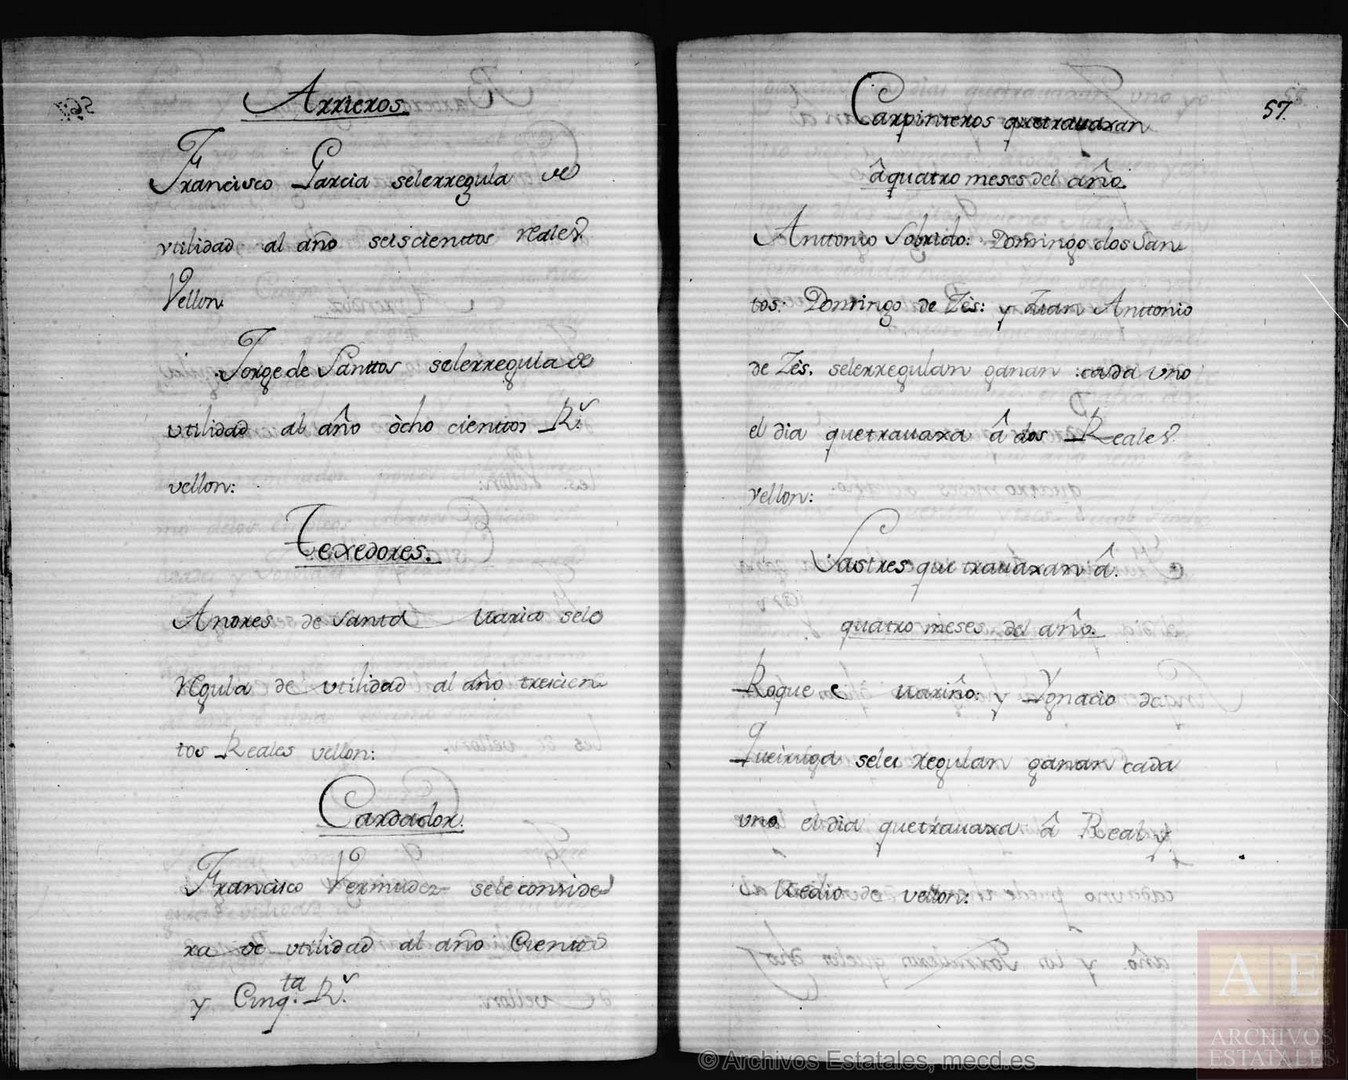 Arrieros.
Francisco Garcia selerregula de
vtilidad al año seiscienttos reales
Vellon
Jorge de Santtos selerregula de
vtilidad al año ôcho cienttos R.^s
vellon:
Texedores.
Andres de santa Maria sele
regula de vtilidad al año trescien
tos Reales vellon:
Cardador.
Francisco Vermudez sele conside
ra de vtilidad al año Cientto
y Cinq.^ta R.^s
57.
Carpinteros quetrauaxan
â quatro meses del año.
Anttonio Sobrido: Domingo dos San
tos: Domingo de Zès: y Juan Anttonio
de Zès, selerregulan ganan cada vno
el dia quetrauaxa â dos Reales
vellon:
Sastres que trauaxan â
quatro meses del año.
Roque Mariño: y Ygnacio de
Queiruga sele regulan ganan cada
vno el dia quetrauaxa â Real y
Medio de vellon:
© Archivos Estatales, mecd.es
AE
ARCHIVOS
ESTATALES